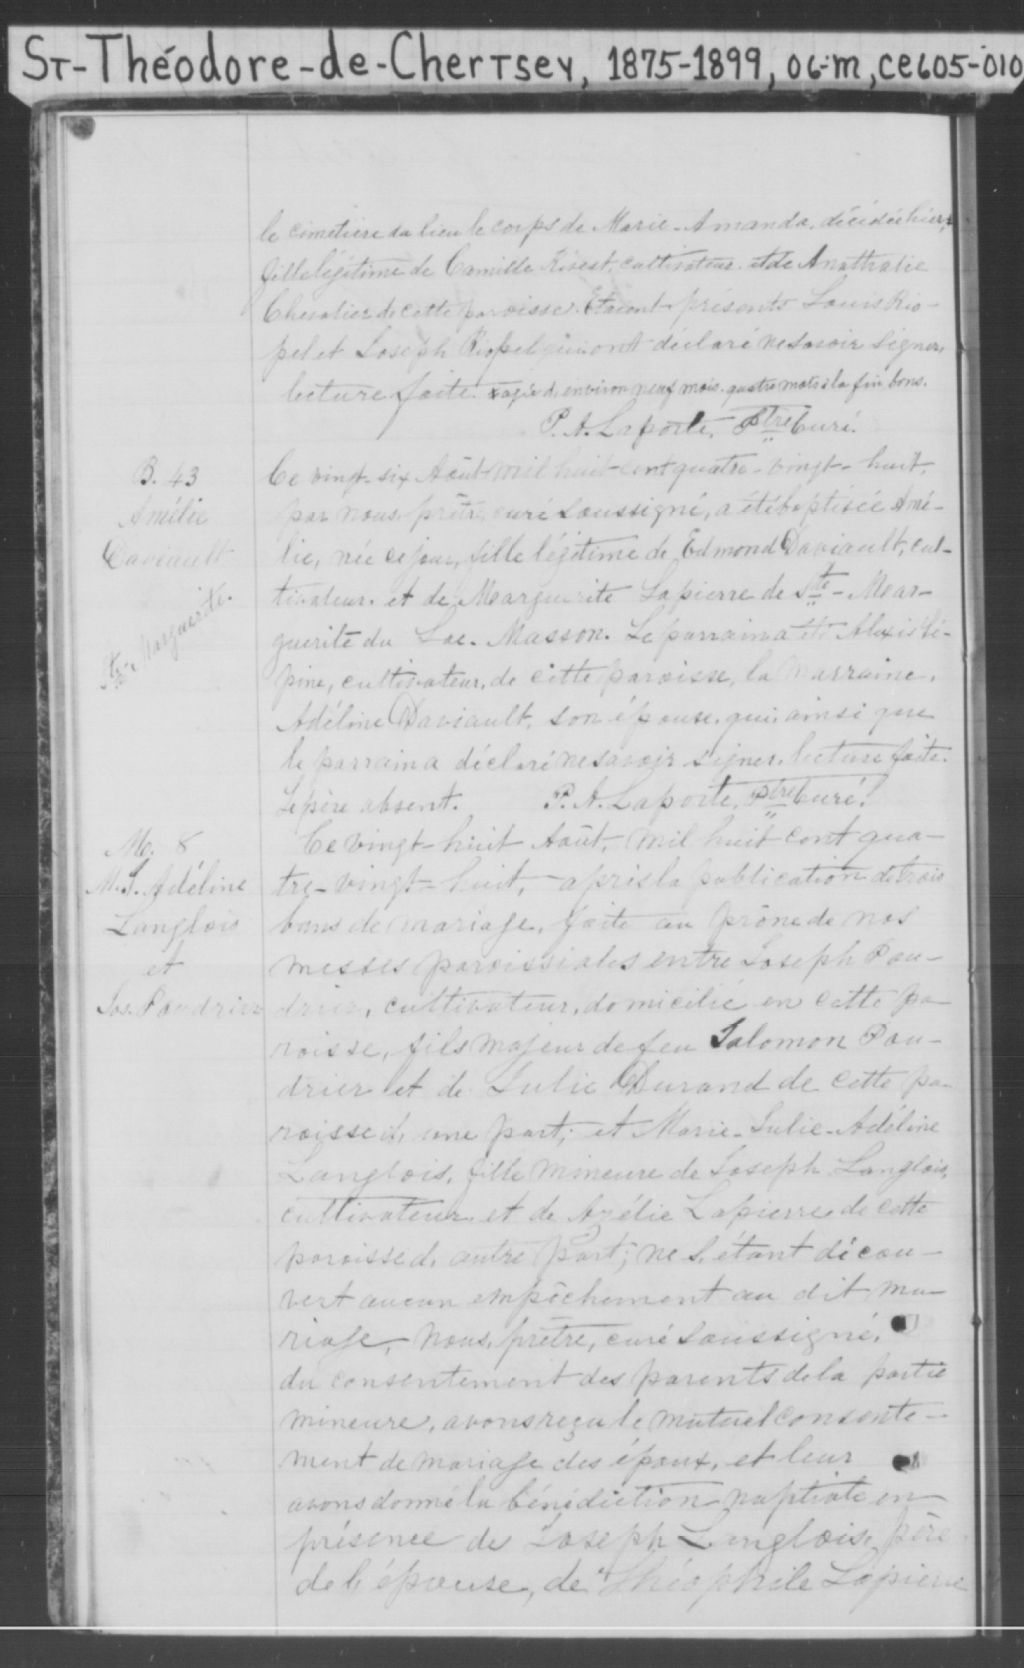 St-Théodore-de-Chertsey, 1875-1899, 06-m, CE605-010
le cimetière du lieu le corps de Marie-Amanda, décédée hier,
fille légitime de Camille Rivest, cultivateur et de Anathalie
Chevalier de cette paroisse. Etaient présents Louis Rio-
pel et Joseph Riopel qui ont déclaré ne savoir signer,
lecture faite. x agée d'environ neuf mois. quatre mots à la fin bons.
P. A. Laporte, Ptre Curé.
B. 43
Amélie
Daviault
Ste Marguerite.
Ce vingt-six Août mil huit-cent quatre-vingt-huit,
par nous, prêtre, curé soussigné, a été baptisée Amé-
lie, née ce jour, fille légitime de Edmond Daviault, cul-
tivateur et de Marguerite Lapierre de Ste-Mar-
guerite du Lac-Masson. Le parrain a été Alexis Lé-
pine, cultivateur, de cette paroisse, la marraine,
Adéline Daviault, son épouse, qui ainsi que
le parrain a déclaré ne savoir signer, lecture faite.
Le père absent. P. A. Laporte, Ptre Curé.
M. 8
M. J. Adéline
Langlois
et
Jos. Paudrier
Ce vingt-huit Août, mil huit cent qua-
tre-vingt-huit, après la publication de trois
bans de mariage, faite au prône de nos
messes paroissiales entre Joseph Pau-
drier, cultivateur, domicilié en cette pa-
roisse, fils majeur de feu Salomon Pau-
drier et de Julie Durand de cette pa-
roisse d'une part; et Marie-Julie-Adéline
Langlois, fille mineure de Joseph Langlois,
cultivateur et de Azélie Lapierre de cette
paroisse d'autre part; ne s'étant décou-
vert aucun empêchement au dit ma-
riage, Nous, prêtre, curé soussigné,
du consentement des parents de la partie
mineure, avons reçu le mutuel consente-
ment de mariage des époux, et leur
avons donné la bénédiction nuptiale en
présence de Joseph Langlois, père
de l'épouse, de Théophile Lapierre